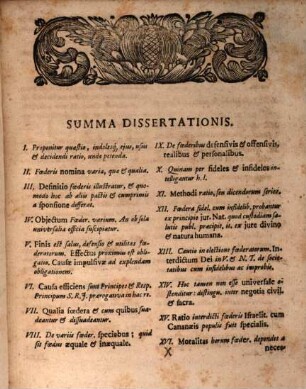 SUMMA DISSERTATIONIS.
I. Proponitur quæstio, indolesq; ejus, usus
& decidendi ratio, unde petenda.
II. Fœderis nomina varia, qua & qualia.
III. Definitio fœderis illustratur, & quo-
modo hoc ab aliis pactis & cumprimis
a sponsione differat.
IV. Objectum Fœder. varium. An ab sola
universalis efficta suscipiatur.
V. Finis est salus, defensio & utilitas fœ-
deratorum. Effectus proximus est obli-
gatio. Causæ impulsivæ ad explendam
obligationem.
VI. Causa efficiens sunt Principes & Resp.
Principum S.R.J. prærogativa in hac re.
VII. Qualia fœdera & cum quibus sua-
deantur & dissuadeantur.
VIII. De variis fœder. speciebus; quid
sit fœdus æquale & inæquale.
IX. De fœderibus defensivis & offensivis,
realibus & personalibus.
X. Quinam per fideles & infideles in-
telligantur h. l.
XI. Methodi ratio, seu dicendorum series.
XII. Fœdera fidel. cum infidelib. probantur
ex principio jur. Nat. quod custodiam sa-
lutis publ. præcipit, it. ex jure divino
& natura humana.
XIII. Cautio in electione fœderatorum.
Interdictum Dei in V. & N. T. de socie-
tatibus cum infidelibus ac improbis,
XIV. Hoc tamen non esse universale
ostenditur: distingu. inter negotia civil.
& sacra.
XV. Ratio interdicti fœderis Israelit. cum
Cananæis populis fuit specialis.
XVI. Moralitas horum fœder. dependet a
X neces-